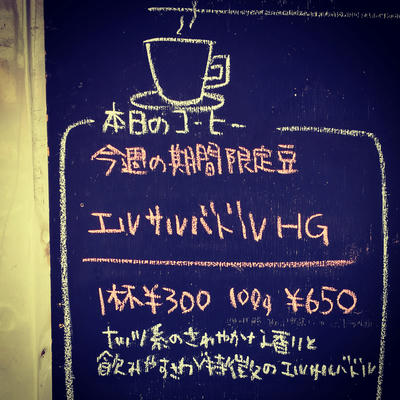 本日のコーヒー
今週の期間限定豆
エルサルバドル HG
1杯¥300 100g ¥650
ナッツ系のさわやかな香りと
飲みやすさが特徴のエルサルバドル